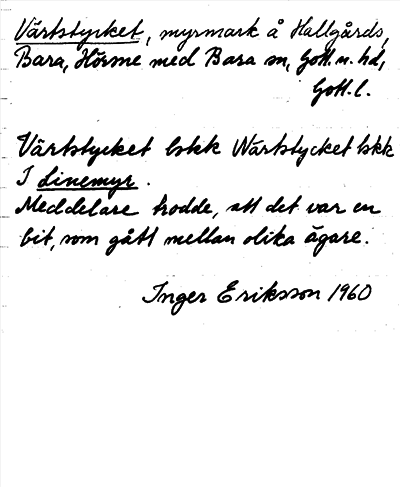 Värtstycket, myrmark å Hallgårds,
Bara, Hörsne med Bara sn, Gotl. n. hd,
Gotl. l.
Värtstycket lskk Wärtstycket lskk
I Linemyr.
Meddelare trodde, att det var en
bit, som gått mellan olika ägare.
Inger Eriksson 1960